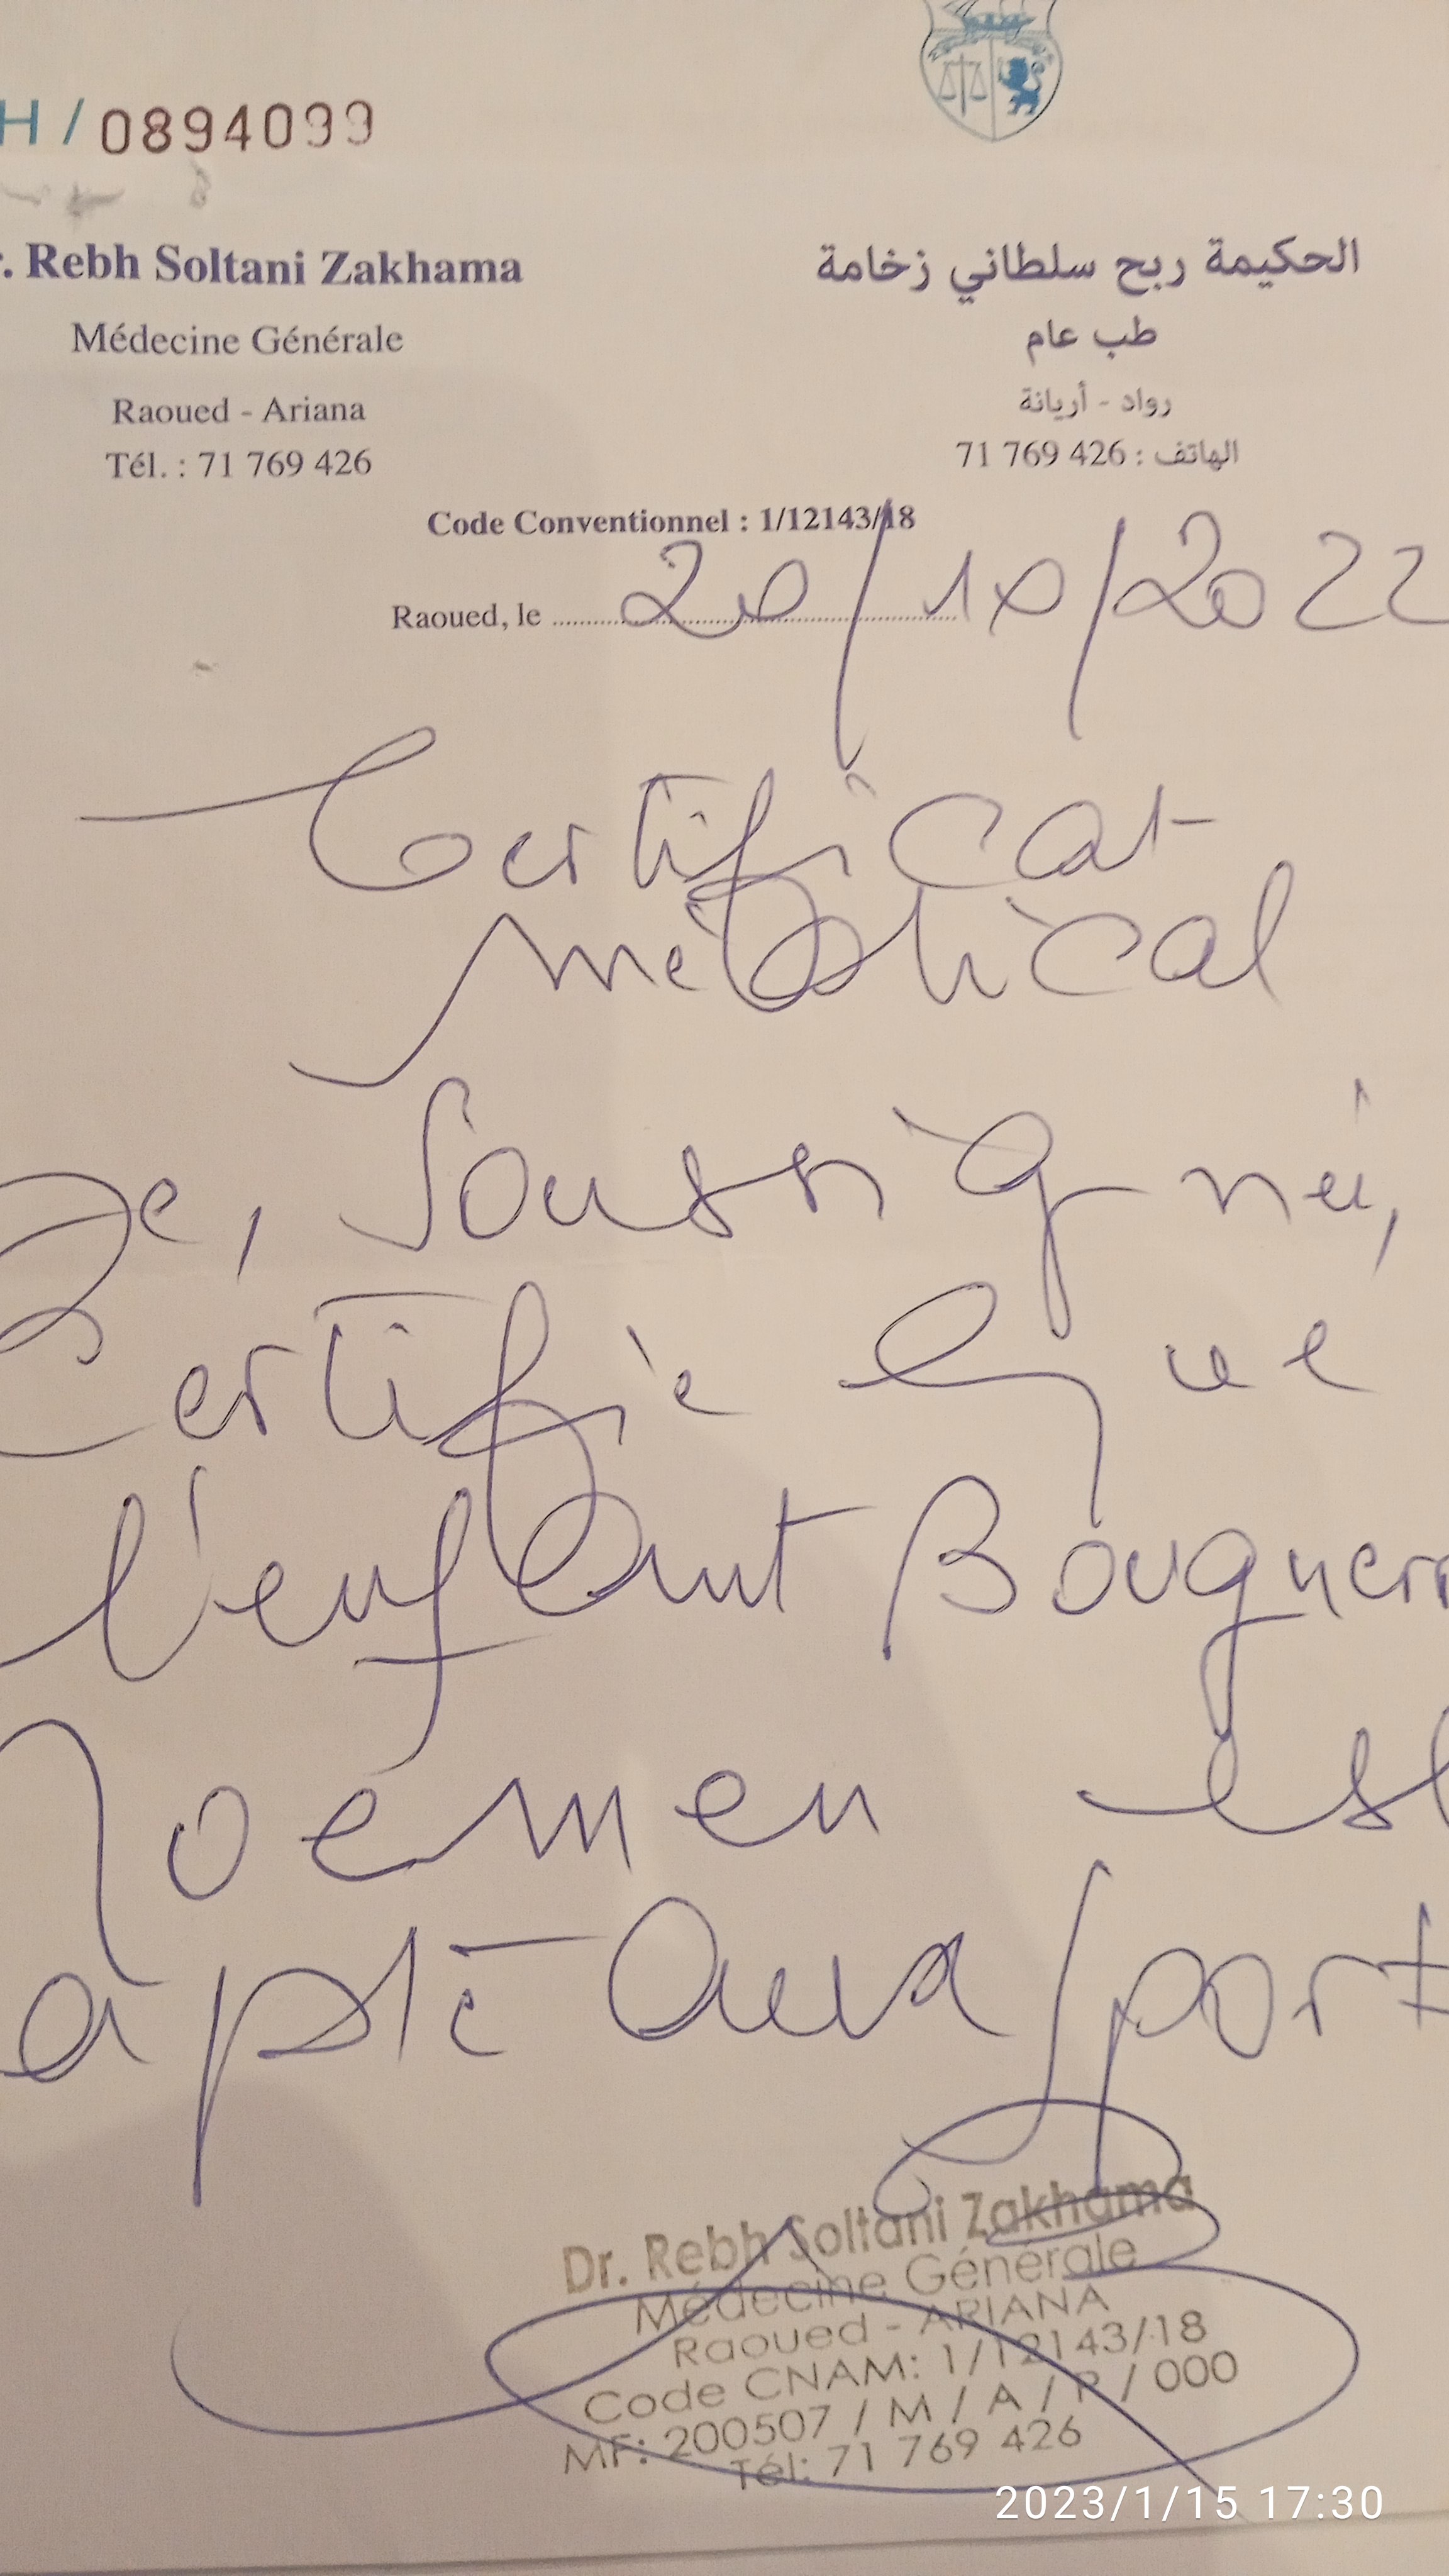 H / 0894099
r. Rebh Soltani Zakhama
Médecine Générale
Raoued - Ariana
Tél. : 71 769 426
الحكيمة ربح سلطاني زخامة
طب عام
رواد - أريانة
الهاتف : 426 769 71
Code Conventionnel : 1/12143/18
Raoued, le 20/10/2022
Certificat
médical
Je, soussigné,
certifie que
l'enfant
est
apte aux sport
Dr. Rebh Soltani Zakhama
Médecine Générale
Raoued - ARIANA
Code CNAM: 1/12143/18
MF: 200507 / M / A / P / 000
Tél: 71 769 426
2023/1/15 17:30